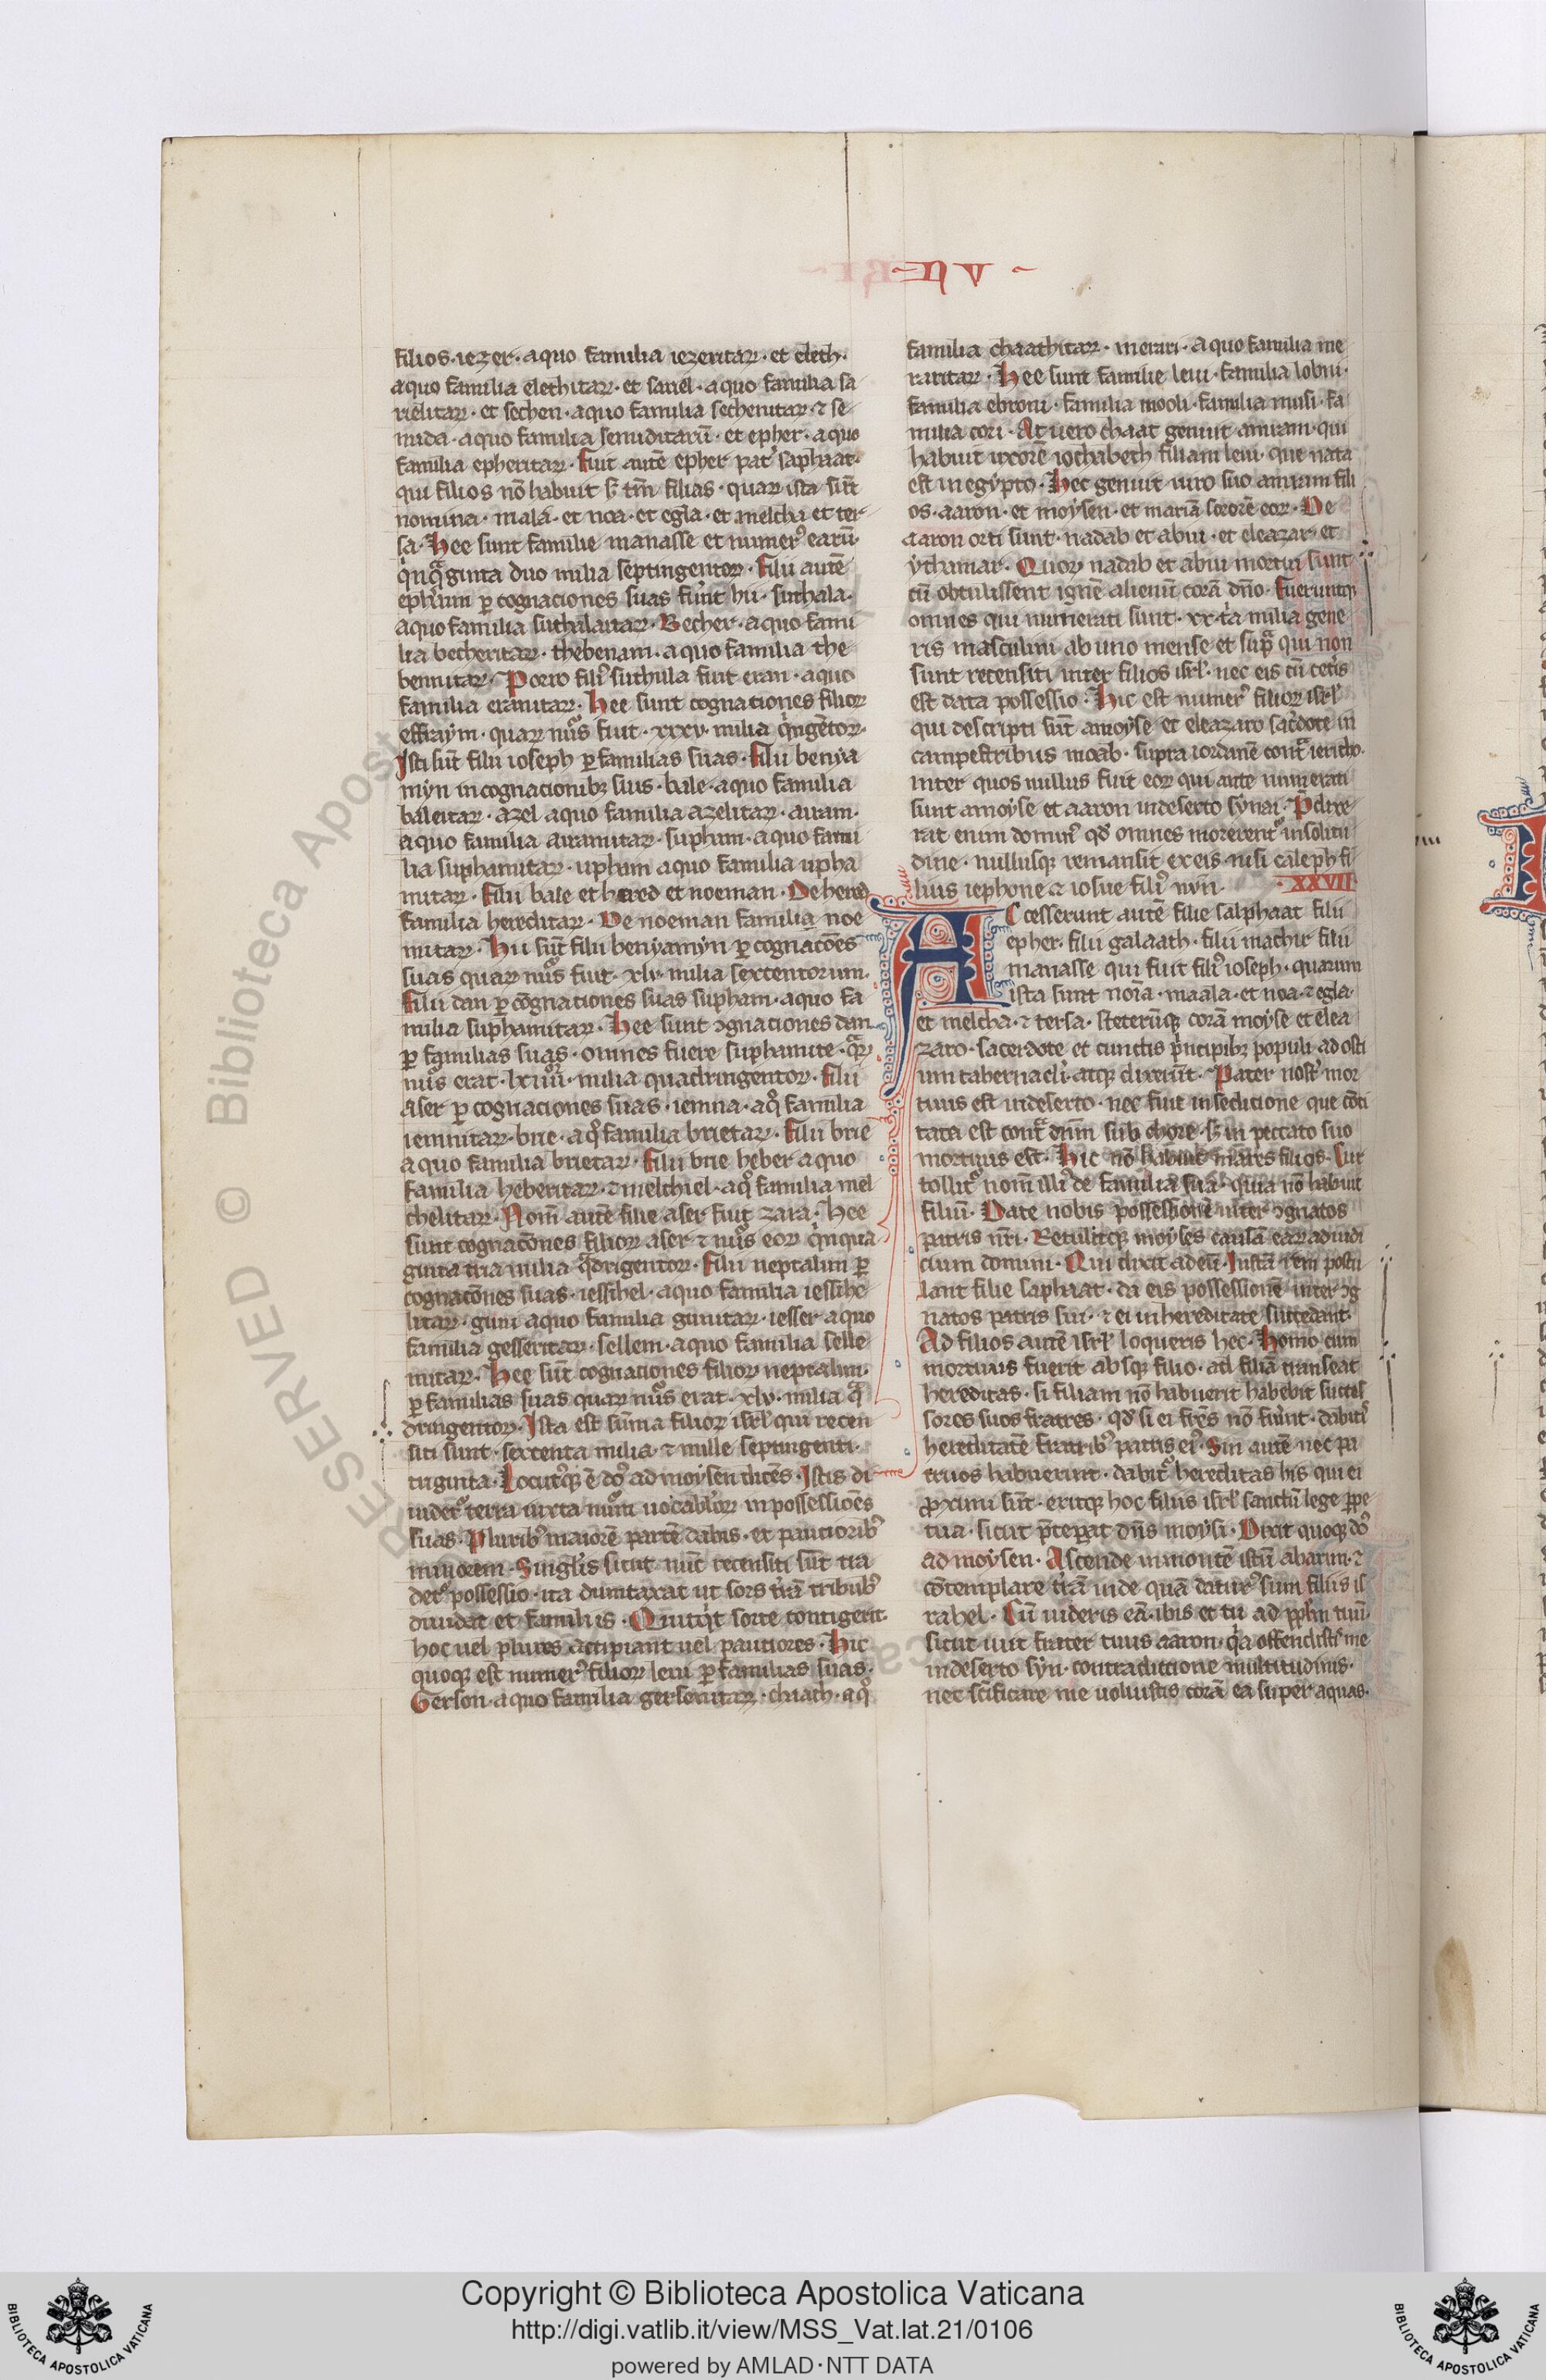 N V
filios· iezer· a quo familia iezeritaꝝ· et eleth·
a quo familia elethitaꝝ· et sariel· a quo familia sa
rielitaꝝ· et sechen· a quo familia sechenitaꝝ· ⁊ se
mida· a quo familia semiditarū· et epher· a quo
familia epheritaꝝ· Fuit autē epher pat̾ saphaat·
qui filios nō habuit s̄ tm̄ filias· quaꝝ ista sūt
nomina· mala· et noa· et egla· et melcha et ter
sa· Hee sunt familie manasse et numerꝰ earū·
qͥnqᷓginta duo milia septingentoꝝ· Filii autē
ephrim ꝑ cognaciones suas fuͤnt hii· suthala·
a quo familia suthalaitaꝝ· Becher· a quo fami
lia becheritaꝝ· thehenam· a quo familia the
henitaꝝ· Porro filiꝰ suthula fuit eran· a quo
familia eranitaꝝ· Hee sunt cognationes filioꝝ
effraym· quaꝝ nūs fuit· xxxv· milia qͥngētoꝝ·
Isti sūt filii ioseph ꝑ familias suas· Filii benya
myn in cognacionibꝫ suis· bale· a quo familia
baleitaꝝ· azel a quo familia azelitaꝝ· airam·
a quo familia airamitaꝝ· supham· a quo fami
lia suphamitaꝝ· upham a quo familia upha
mitaꝝ· Filii bale et hered et noeman· De hered
familia hereditaꝝ· De noeman familia noe
mitaꝝ· Hii sūt filii benyamyn ꝑ cognacōes
suas quaꝝ nūs fuit· xlv· milia sexcentorum·
Filii dan ꝑ cōgnationes suas supham· a quo fa
milia suphamitaꝝ· Hee sunt ꝯgnaciones dan
ꝑ familias suas· omnes fuere suphamite· qᷓꝝ
nūs erat· lxiiii· milia quadringentoꝝ· Filii
aser ꝑ cognaciones suas· iemna· a qͦ familia
iemnitaꝝ· brie· a qͦ familia brietaꝝ· Filii brie
a quo familia brietaꝝ· Filii brie heber a quo
familia heberitaꝝ· ⁊ melchiel· a qͦ familia mel
chelitaꝝ· Nom̄ autē filie aser fuit zara· Hee
sunt cognacōnes filioꝝ aser ⁊ nūs eoꝝ qͥnqua
ginta tria milia qᷓdrigentoꝝ· Filii neptalim ꝑ
cognacōnes suas· iessihel· a quo familia iessihe
litaꝝ· guni a quo familia gunitaꝝ· iesser a quo
familia gesseritaꝝ· sellem· a quo familia selle
mitaꝝ· Hee sūt cognaciones filioꝝ neptalim·
ꝑ familias suas quaꝝ nūs erat· xlv· milia qᷓ
dringentoꝝ· Ista est sūma filioꝝ isrl̄ qui recen
siti sunt· sexcenta milia ⁊ mille septingenti·
triginta· Locutꝰqꝫ ē dn̄s ad moysen dicēs· Istis di
uidet᷑ terra iuxta num̄ uocabl̓oꝝ in possessiōes
suas· Pluribꝰ maiorē partē dabis· et paucioribꝰ
minorem· Singl̓is sicut nūc recensiti sūt tra
det᷑ possessio· ita dumtaxat ut sors t̄rā tribubꝰ
diuidat et familiis· Quitqͥt sorte contigerit·
hoc uel plures accipiant uel pauciores· Hic
quoqꝫ est numerꝰ filioꝝ leui ꝑ familias suas·
Gerson· a quo familia gersonitaꝝ· chaath· a qͦ
familia chaathitaꝝ· merari· a quo familia me
raritaꝝ· Hee sunt familie leui· familia lobni·
familia ebroni· familia mooli· familia musi· fa
milia cori· At uero chaat genuit amram· qui
habuit uxorē iochabeth filiam leui· que nata
est in egypto· Hec genuit uiro suo amram fili
os· aaron· et moysen· et mariā sororē eoꝝ· De
aaron orti sunt· nadab et abiu· et eleazar· et
ythamar· Quoꝝ nadab et abiu mortui sunt
cū obtulissent ignē alienū corā dn̄o· Fueruntqꝫ
omnes qui numerati sunt· xx· tͥa milia gene
ris masculini ab uno mense et supᷓ qui non
sunt recensiti inter filios isrl̄· nec eis cū cetis̄
est data possessio· Hic est numerꝰ filioꝝ isrl̄
qui descripti sūt a moyse et eleazaro sac̄dote in
campestribus moab· supra iordanē contᷓ iericho·
inter quos nullus fuit eoꝝ qui ante numerati
sunt a moyse et aaron in deserto synai· P̄dixe
rat enim dominꝰ qd̄ omnes morerent᷑ in solitu
dine· nullusqꝫ remansit ex eis· nisi caleph fi
lius iephone ⁊ iosue filiꝰ nyn· XXVII
Accesserunt autē filie salphaat filii
epher· filii galaath· filii machir filii
manasse qui fuit filiꝰ ioseph· quarum
ista sunt noīa· maala· et noa· ⁊ egla·
et melcha· ⁊ tersa· steterūtqꝫ corā moyse et elea
zaro· sacerdote et cunctis pͥncipibꝫ populi· ad osti
um tabernacl̓i· atqꝫ dixerūt· Pater nost̾ mor
tuus est in deserto· nec fuit in sedicione que cōci
tata est contᷓ dn̄m sub chore· s̄ in peccato suo
mortuus est· Hic nō habuit mares filios· Cur
tollit᷑ nom̄ illiꝰ de familia sua· quia nō habuit
filiū· Date nobis possessionē inter ꝯgnatos
patris nr̄i· Retulitqꝫ moyses causā eaꝝ ad iudi
cium domini· Qui dixit ad eū· Iustā rem postu
lant filie saphaat· da eis possessionē inter ꝯg
natos patris sui· ⁊ ei in hereditate succedant·
Ad filios autē isrl̄ loqueris hec· Homo cum
mortuus fuerit absqꝫ filio· ad filiā transeat
hereditas· si filiam nō habuerit habebit succes
sores suos fratres· qd̄ si ei fr̄es nō fuͤint· dabitis
hereditatē fratribꝰ patris eiꝰ· Sin autē nec pa
truos habuerint· dabit᷑ hereditas his qui ei
ꝓximi sūt· eritqꝫ hoc filiis isrl̄ sanctū lege ꝑpe
tua· sicut p̄cepat dn̄s moysi· Dixit quoqꝫ dn̄s
ad moysen· Ascende in montē istū abarim· ⁊
cōtemplare t̄rā inde quā daturꝰ sum filiis is
rahel· Cū uideris eā· ibis et tu ad pp̄lm tuū·
sicut iuit frater tuus aaron· qͥa offendisti me
in deserto syn· contradictione multitudinis·
nec sc̄ificare me uoluistis corā ea super aquas·
RESERVED © Biblioteca Apost
Copyright © Biblioteca Apostolica Vaticana
http://digi.vatlib.it/view/MSS_Vat.lat.21/0106
powered by AMLAD·NTT DATA
BIBLIOTECA APOSTOLICA VATICANA
BIBLIOTECA APOSTOLICA VATICANA